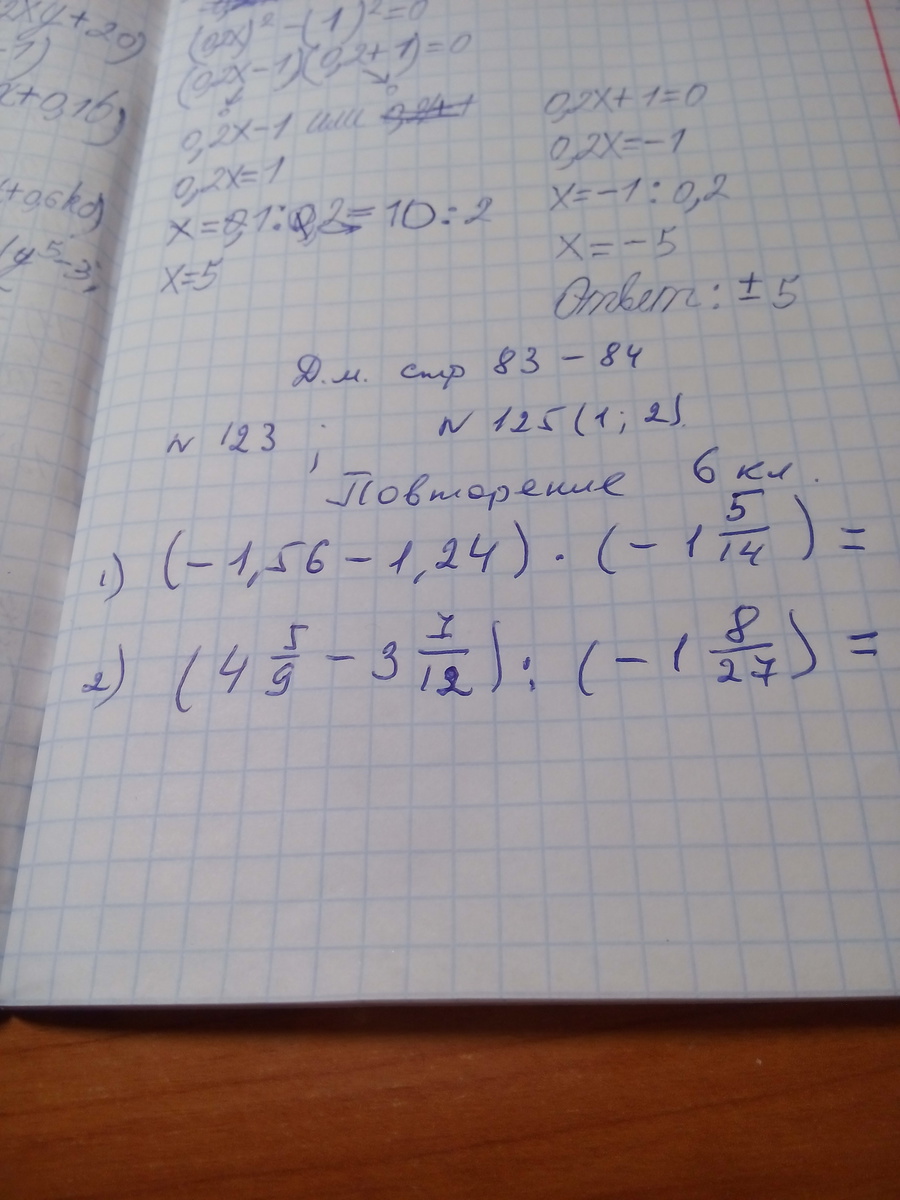 2xy+20)
-1)
x+0,16)
(y⁵-3;
(0,2x)²-(1)²=0
(0,2x-1)(0,2+1)=0
0,2x-1 или
0,2x=1
x=0,1:0,2=10:2
x=5
0,2x+1=0
0,2x=-1
x=-1:0,2
x=-5
Ответ: ±5
Д.м. стр 83-84
N 123 ; N 125(1; 2).
Повторение 6 кл.
1) (-1,56-1,24)·(-1 5/14)=
2) (4 5/9-3 7/12):(-1 8/27)=